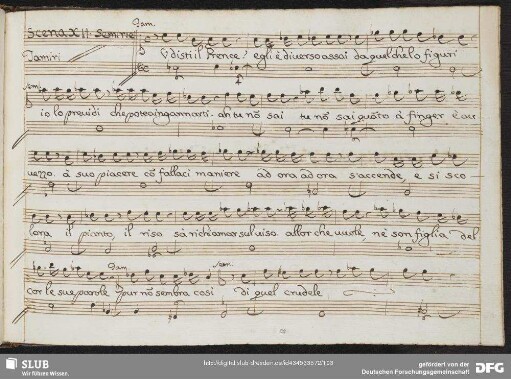 Scena XII Semire
Tam.
Tamiri
Udisti il Prence? egli è diverso assai da quel che lo figuri
Semi.
io lo previdi che potea ingannarti. ah tu nō sai tu nō sai quāto à finger è au
uezzo. à suo piacere cō fallaci maniere ad ora ad ora s'accende, e si sco
lora il pianto, il riso sà richiamar sul uiso allor che vuole ne son figlia del
Tam. Sem.
cor le sue parole Pur nō sembra così di quel crudele
SLUB
Wir führen Wissen.
gefördert von der
Deutschen Forschungsgemeinschaft
DFG